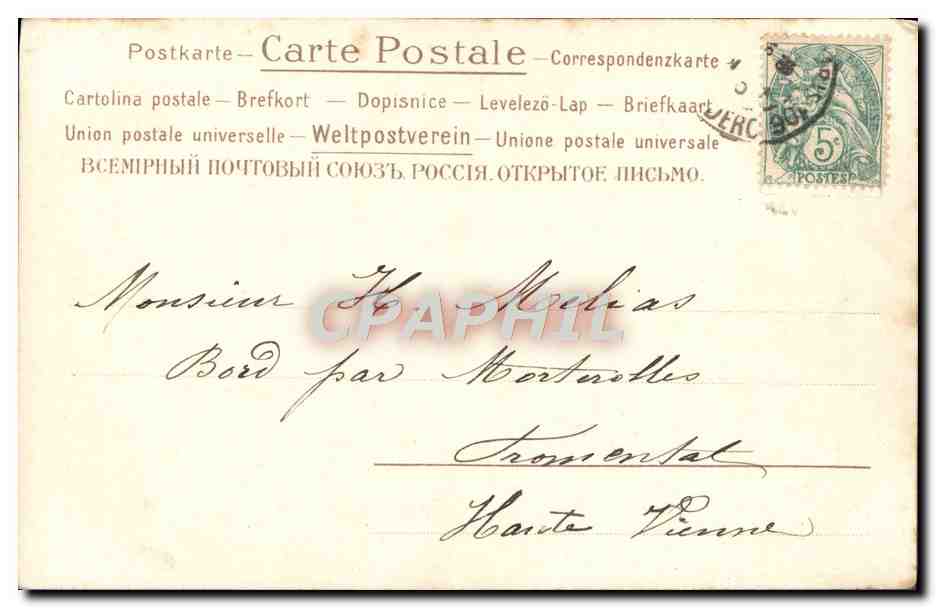 Postkarte — Carte Postale — Correspondenzkarte —
Cartolina postale — Brefkort — Dopisnice — Levelező-Lap — Briefkaart
Union postale universelle — Weltpostverein — Unione postale universale
ВСЕМІРНЫЙ ПОЧТОВЫЙ СОЮЗЪ. РОССІЯ. ОТКРЫТОЕ ПИСЬМО.
5c
POSTES
Monsieur H. Melias
CPAPHIL
Bord par Morterolles
Fromental
Haute Vienne